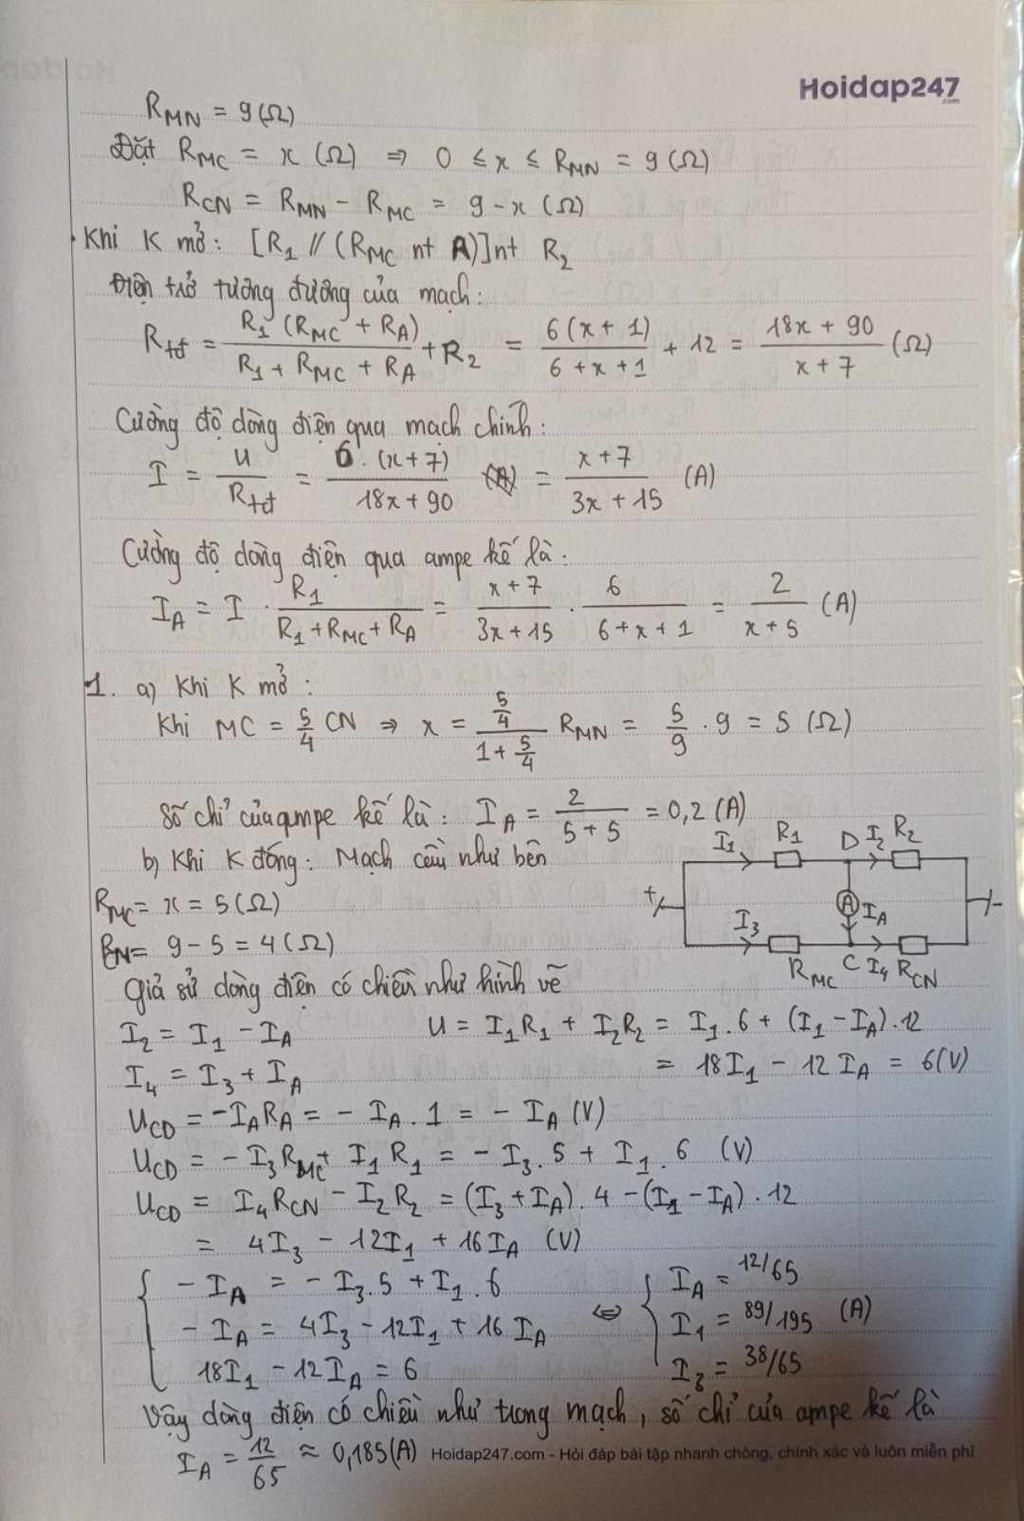 Hoidap247
.com
R_MN = 9 (Ω)
Đặt R_MC = x (Ω) ⇒ 0 ≤ x ≤ R_MN = 9 (Ω)
R_CN = R_MN - R_MC = 9 - x (Ω)
Khi K mở: [R_1 // (R_MC nt A)] nt R_2
Điện trở tương đương của mạch:
R_tđ = R_1 (R_MC + R_A) / (R_1 + R_MC + R_A) + R_2 = 6(x + 1) / (6 + x + 1) + 12 = (18x + 90) / (x + 7) (Ω)
Cường độ dòng điện qua mạch chính:
I = U / R_tđ = 6 . (x + 7) / (18x + 90) = (x + 7) / (3x + 15) (A)
Cường độ dòng điện qua ampe kế là:
I_A = I . R_1 / (R_1 + R_MC + R_A) = (x + 7) / (3x + 15) . 6 / (6 + x + 1) = 2 / (x + 5) (A)
1. a) Khi K mở:
Khi MC = 5/4 CN ⇒ x = (5/4) / (1 + 5/4) R_MN = 5/9 . 9 = 5 (Ω)
Số chỉ của ampe kế là: I_A = 2 / (5 + 5) = 0,2 (A)
b) Khi K đóng: Mạch cầu như bên
I_1 R_1 D I_2 R_2
+ A I_A -
I_3 R_MC C I_4 R_CN
R_MC = x = 5 (Ω)
R_CN = 9 - 5 = 4 (Ω)
Giả sử dòng điện có chiều như hình vẽ
I_2 = I_1 - I_A U = I_1 R_1 + I_2 R_2 = I_1 . 6 + (I_1 - I_A) . 12
I_4 = I_3 + I_A = 18I_1 - 12 I_A = 6 (V)
U_CD = -I_A R_A = - I_A . 1 = - I_A (V)
U_CD = - I_3 R_MC + I_1 R_1 = - I_3 . 5 + I_1 . 6 (V)
U_CD = I_4 R_CN - I_2 R_2 = (I_3 + I_A) . 4 - (I_1 - I_A) . 12
= 4I_3 - 12I_1 + 16I_A (V)
{ - I_A = - I_3 . 5 + I_1 . 6 { I_A = 12/65
- I_A = 4I_3 - 12I_1 + 16 I_A ⇔ I_1 = 89/195 (A)
18I_1 - 12I_A = 6 I_3 = 38/65
Vậy dòng điện có chiều như trong mạch, số chỉ của ampe kế là
I_A = 12/65 ≈ 0,185 (A) Hoidap247.com - Hỏi đáp bài tập nhanh chóng, chính xác và luôn miễn phí